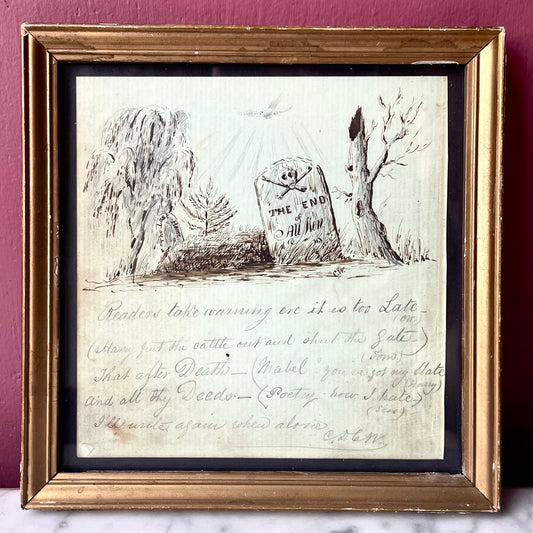 THE END
of
All Men
Readers take warning ere it is too Late -
(Harry put the cattle out and shut the gate)
That after Death - (Mabel "you've got my Slate
(Harry)
and all thy Deeds - (Poetry how I hate)
I'll write again when alone
C.D.C.W.